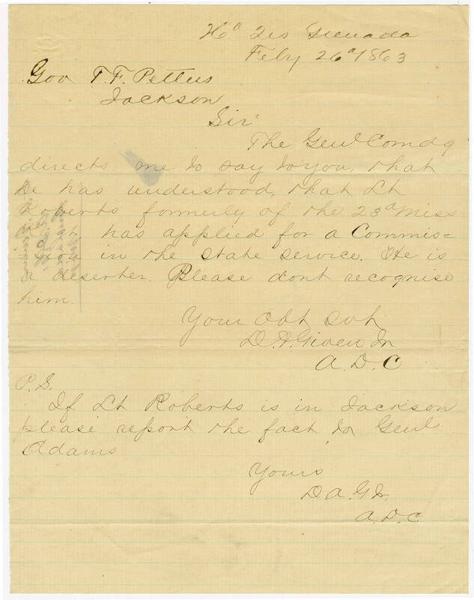 Hd Qrs Grenada
Feby 26th 1863
Gov T F. Pettus
Jackson
Sir
The Genl Comdg
directs me to say to you, that
he has understood, that Lt
Roberts formerly of the 23d Miss
has applied for a Commis=
in the State service. He is
a deserter. Please dont recognise
him.
Your Obt Svt
D. A. Given Jr
A. D. C
P.S.
If Lt Roberts is in Jackson
please report the fact to Genl
Adams
Yours
D A. G Jr.
A. D. C